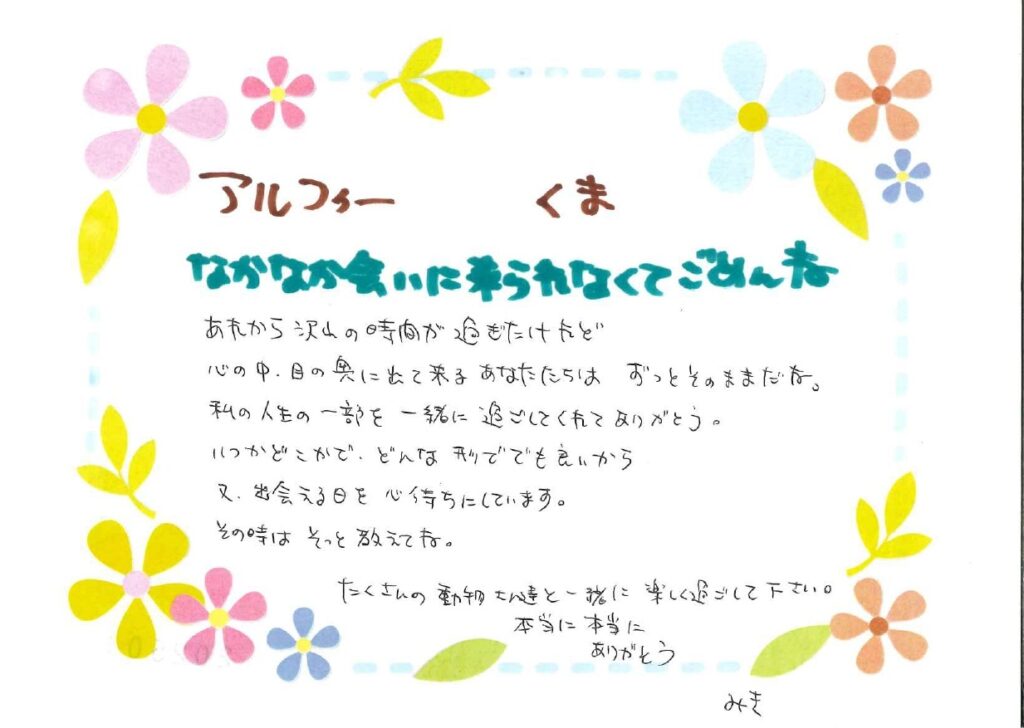 アルフィー くま
なかなか会いに来られなくてごめんね
あれから沢山の時間が過ぎたけれど
心の中、目の奥に出て来るあなたたちは ずっとそのままだな。
私の人生の一部を 一緒に過ごしてくれてありがとう。
いつかどこかで、どんな形ででも良いから
又、出会える日を心待ちにしています。
その時は そっと教えてね。
たくさんの動物さん達と一緒に楽しく過ごして下さい。
本当に本当に
ありがとう
みき